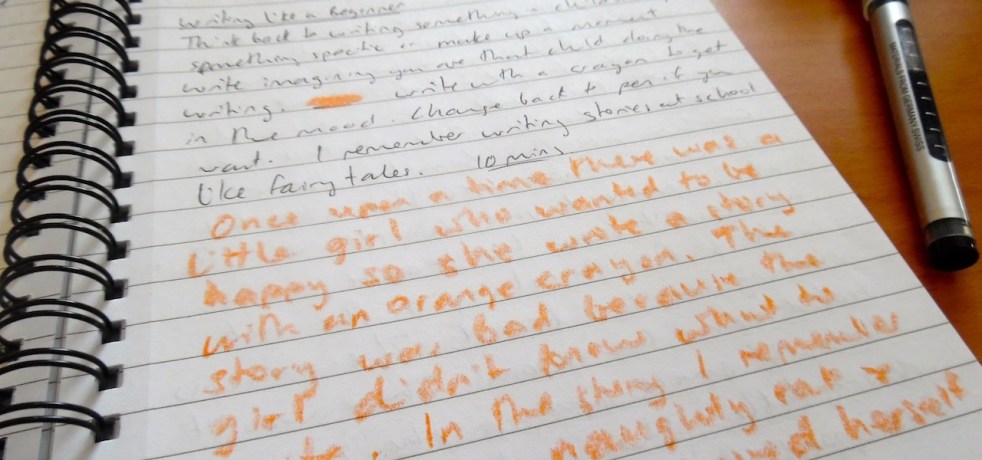 Writing like a Beginner
Think back to writing something a child
something specific or make up a moment
write imagining you are that child doing the
writing. write with a crayon to get
in the mood. Change back to pen if you
want. I remember writing stories at school
like fairytales. 10 mins
Once upon a time there was a
little girl who wanted to be
happy so she wrote a story
with an orange crayon. The
story was bad because the
girl didn't know what to
In the story I remember
naughty rat &
herself